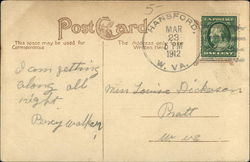 5-
Post Card
This space may be used for
Correspondence
The Address only to be
Written Here
HANSFORD,
MAR
23
PM
1912
W. VA.
ONE CENT
I am getting
along all
right.
Percy Walker
Miss Louise Dickason
Pratt
W va